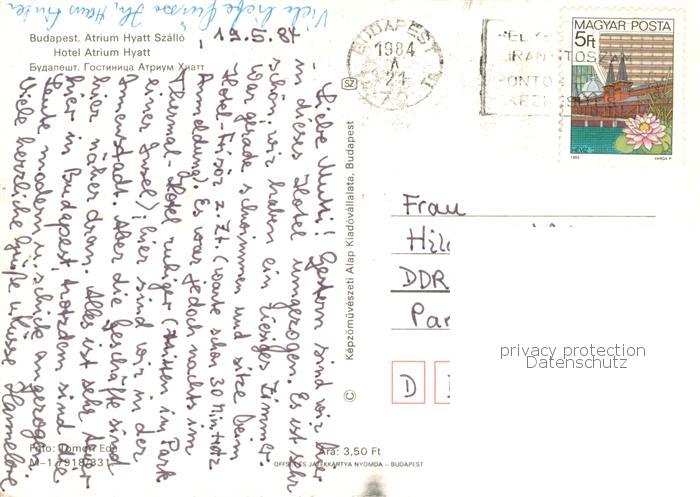 Viele liebe Grüsse Ihr, Hans Günter
Budapest. Atrium Hyatt Szálló
Hotel Atrium Hyatt
Будапешт. Гостиница Атриум Хиатт
19.5.84
Liebe Mutti! Gestern sind wir hier
in dieses Hotel umgezogen. Es ist sehr
schön, wir haben ein riesiges Zimmer.
War gerade schwimmen und sitze beim
Hotel-Frisör z. Zt. (warte schon 30 Min trotz
Anmeldung). Es war jedoch nachts im
Thermal-Hotel ruhiger (mitten im Park
einer Insel), hier sind wir in der
Innenstadt. Aber die Geschäfte sind
hier näher dran. Alles ist sehr teuer
hier in Budapest, trotzdem sind die
Leute modern u. schick angezogen.
Viele herzliche Grüße u. Küsse Hannelore
Foto: Tomori Ede
M-1 7918/831
Képzőművészeti Alap Kiadóvállalata, Budapest
©
SZ
Ára: 3,50 Ft
OFFSET ÉS JÁTÉKKÁRTYA NYOMDA – BUDAPEST
BUDAPEST
1984
21
MAGYAR POSTA
5Ft
1983
VARGA P.
Frau
DDR
D
privacy protection
Datenschutz